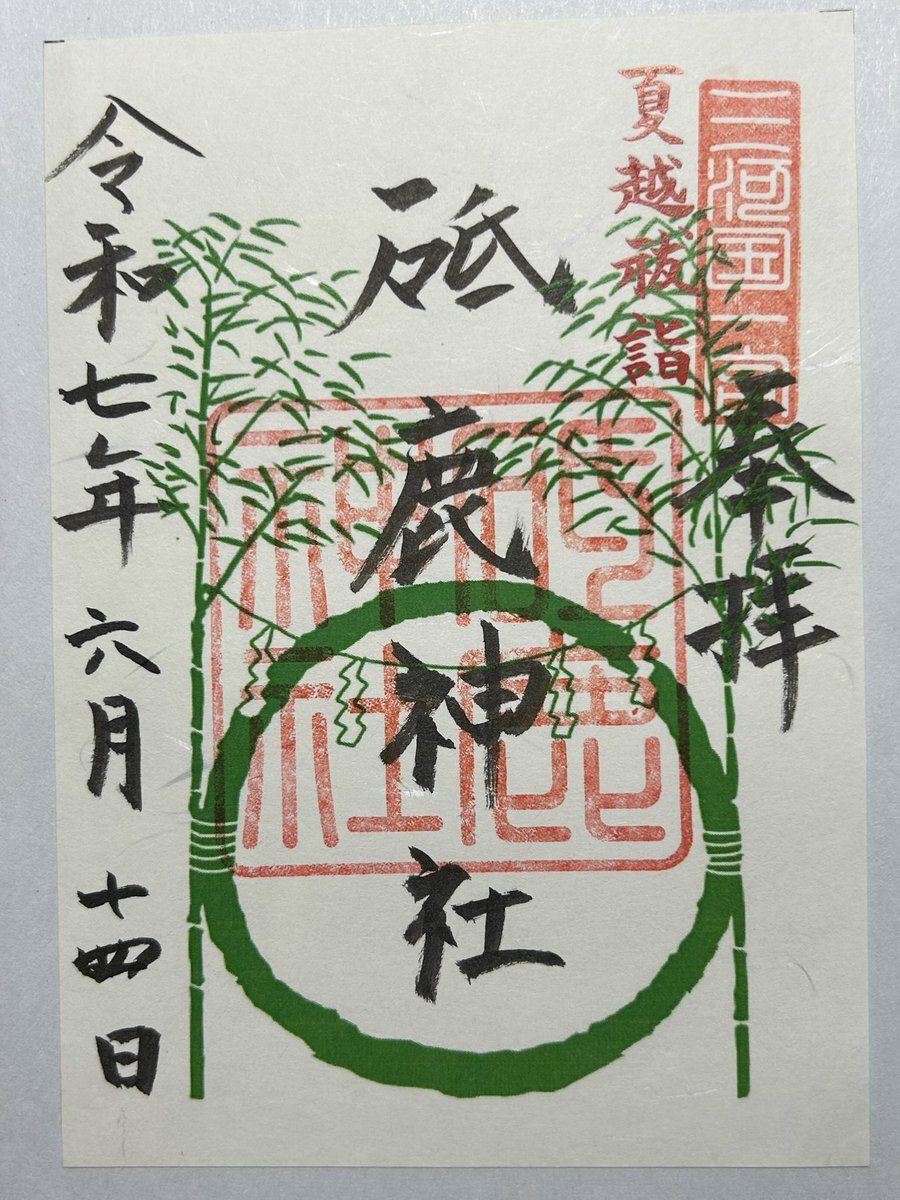 三河国一宮
夏越祓詣
奉拝
砥鹿神社
砥鹿神社
令和七年六月十四日